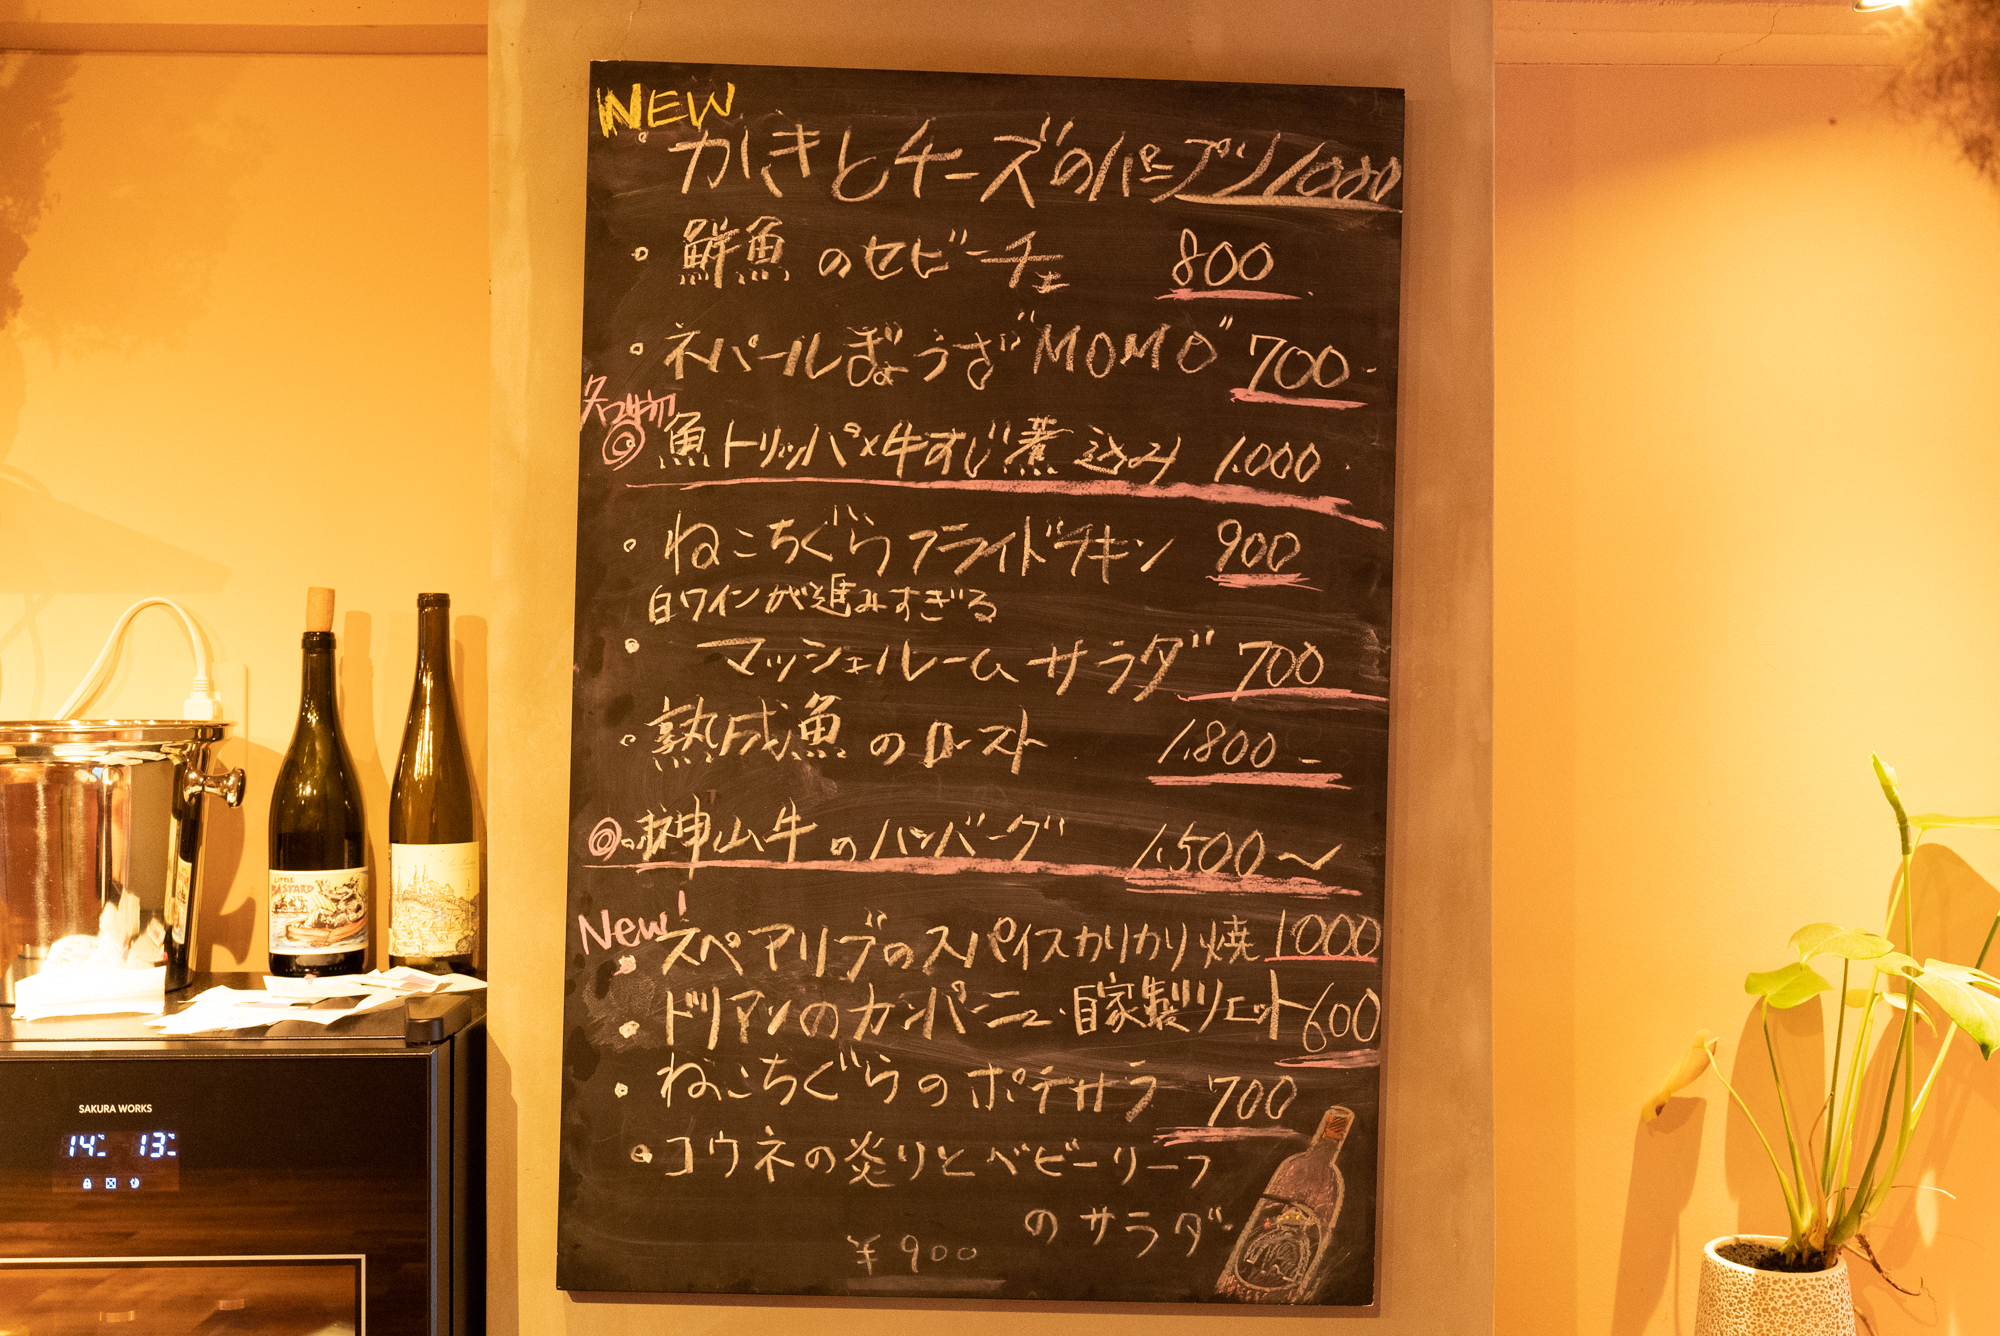 NEW
・かきとチーズのパープリ 1000
・鮮魚のセビーチェ 800
・ネパールぎょうざ"MOMO" 700-
名物
◎魚トリッパ×牛すじ煮込み 1.000
・ねこちぐらフライドチキン 900
白ワインが進みすぎる
・マッシュルームサラダ 700
・熟成魚のロースト 1.800-
◎・神山牛のハンバーグ 1.500〜
New!
・スペアリブのスパイスカリカリ焼 1000
・ドリアンのカンパーニュ・自家製リエット 600
・ねこちぐらのポテサラ 700
・コウネの炙りとベビーリーフ
のサラダ
¥900
LITTLE
BASTARD
SAKURA WORKS
14℃ 13℃